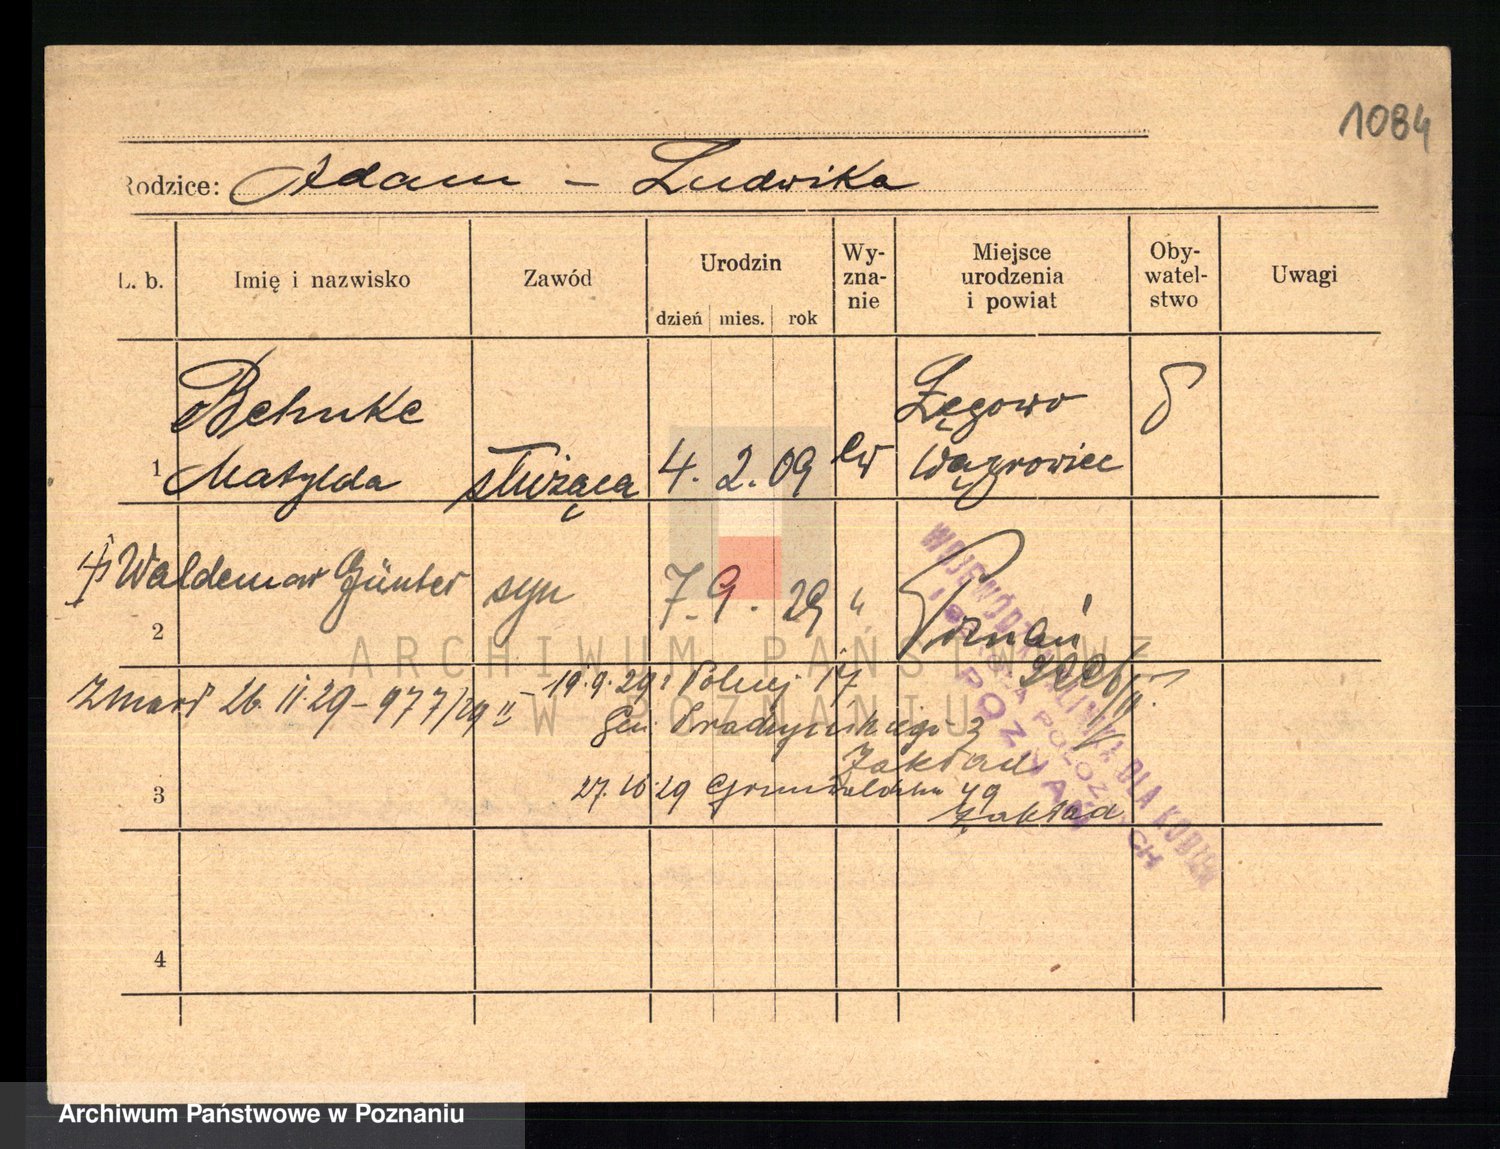 1084
Rodzice: Adam - Ludwika
L. b.
Imię i nazwisko
Zawód
Urodzin
dzień mies. rok
Wy-
zna-
nie
Miejsce
urodzenia
i powiat
Oby-
watel-
stwo
Uwagi
1
Behnke
Matylda
służąca
4. 2. 09
ew
Łęgowo
Wągrowiec
2
Waldemar Günter
syn
7. 9. 29
"
Poznań
WOJEWÓDZKA KLINIKA DLA KOBIET
I SZKOŁA POŁOŻNYCH
POZNAŃ
Zmarł 26. 11. 29 - 977/29 II
19. 9. 29: Polnej 17
Gen. Prądzyńskiego 3
Zakład
3
27. 10. 29 Grunwaldzka 49
Zakład
4
ARCHIWUM PAŃSTWOWE
W POZNANIU
Archiwum Państwowe w Poznaniu